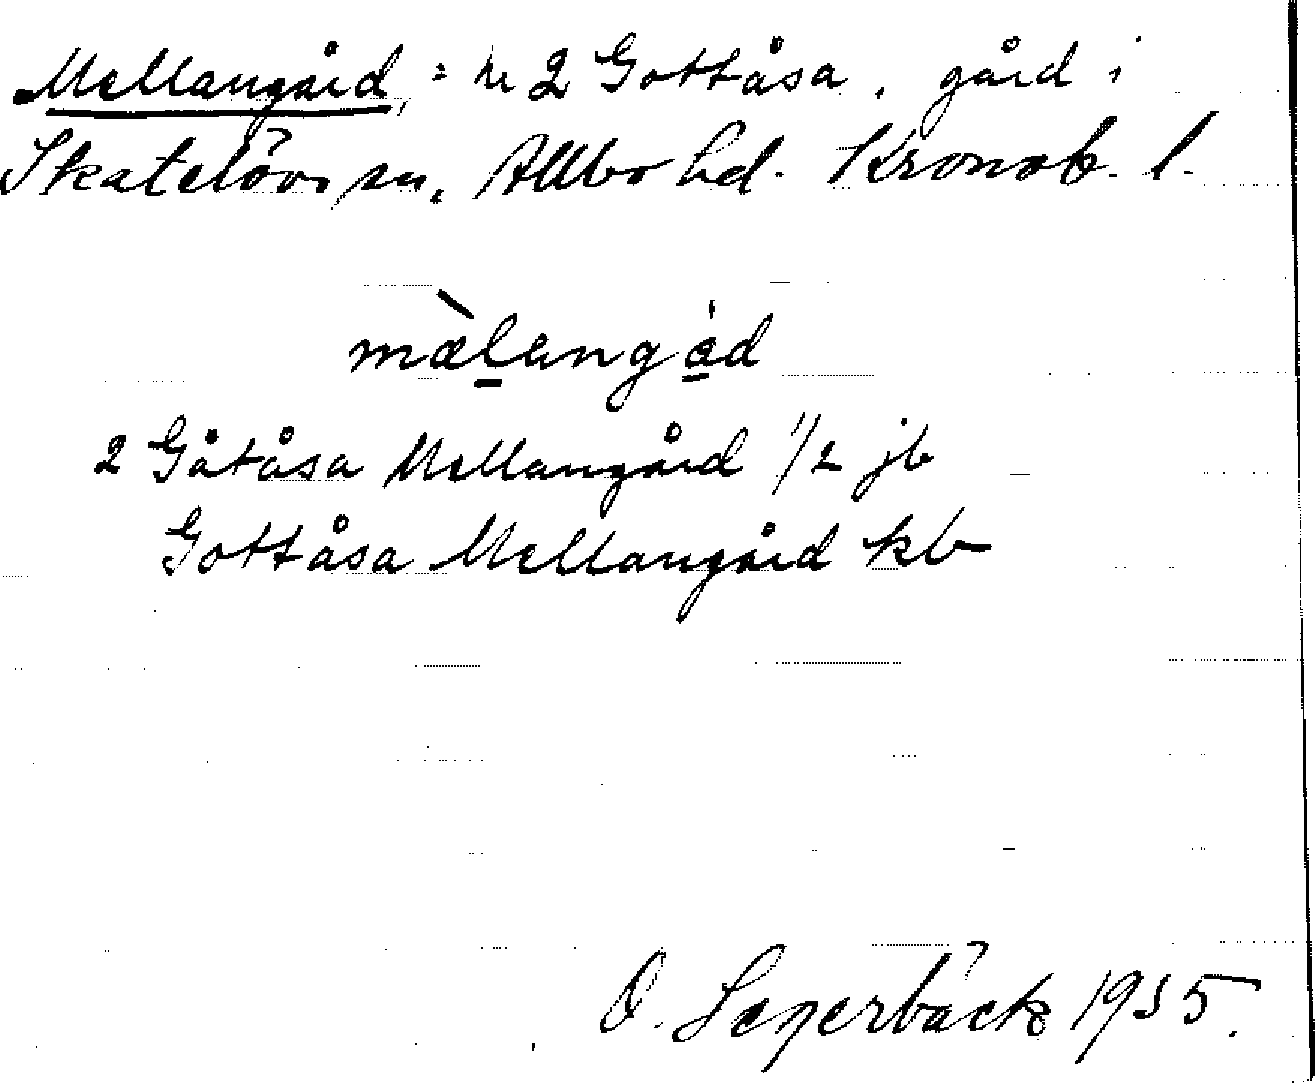 Mellangård, = nr 2 Gottåsa, gård i
Skatelövs sn, Allbo hd. Kronob. l.
mæ̀langåd
2 Gåtåsa Mellangård 1/2 jb
Gottåsa Mellangård kb
O. Segerbäck 1935.